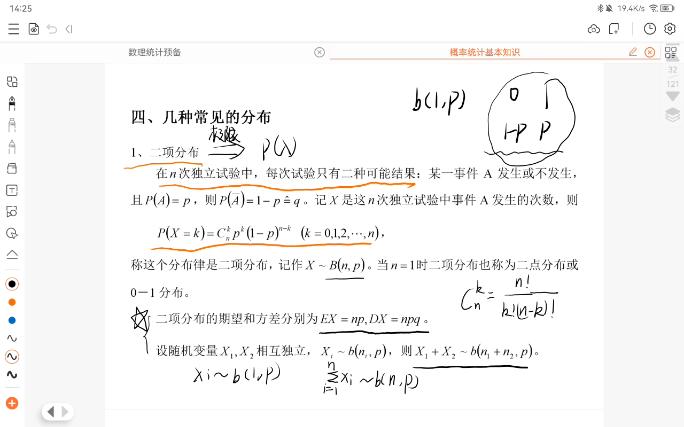 14:25 19.4K/s
数理统计预备 概率统计基本知识
32
121
b(1,p)
0 1
1-p p
四、几种常见的分布
极限
1、二项分布 → P(λ)
在n次独立试验中，每次试验只有二种可能结果：某一事件 A 发生或不发生，
且P(A)=p，则P(Ā)=1−p≜q。记X是这n次独立试验中事件 A 发生的次数，则
P(X=k)=C_n^k p^k(1−p)^{n−k} (k=0,1,2,⋯,n)，
称这个分布律是二项分布，记作 X～B(n,p)。当n=1时二项分布也称为二点分布或
0－1 分布。
C_n^k = n!/(k!(n-k)!)
二项分布的期望和方差分别为EX=np,DX=npq。
设随机变量X₁,X₂相互独立，X_i～b(n_i,p)，则X₁+X₂～b(n₁+n₂,p)。
Xi～b(1,p) ∑_{i=1}^n Xi～b(n,p)